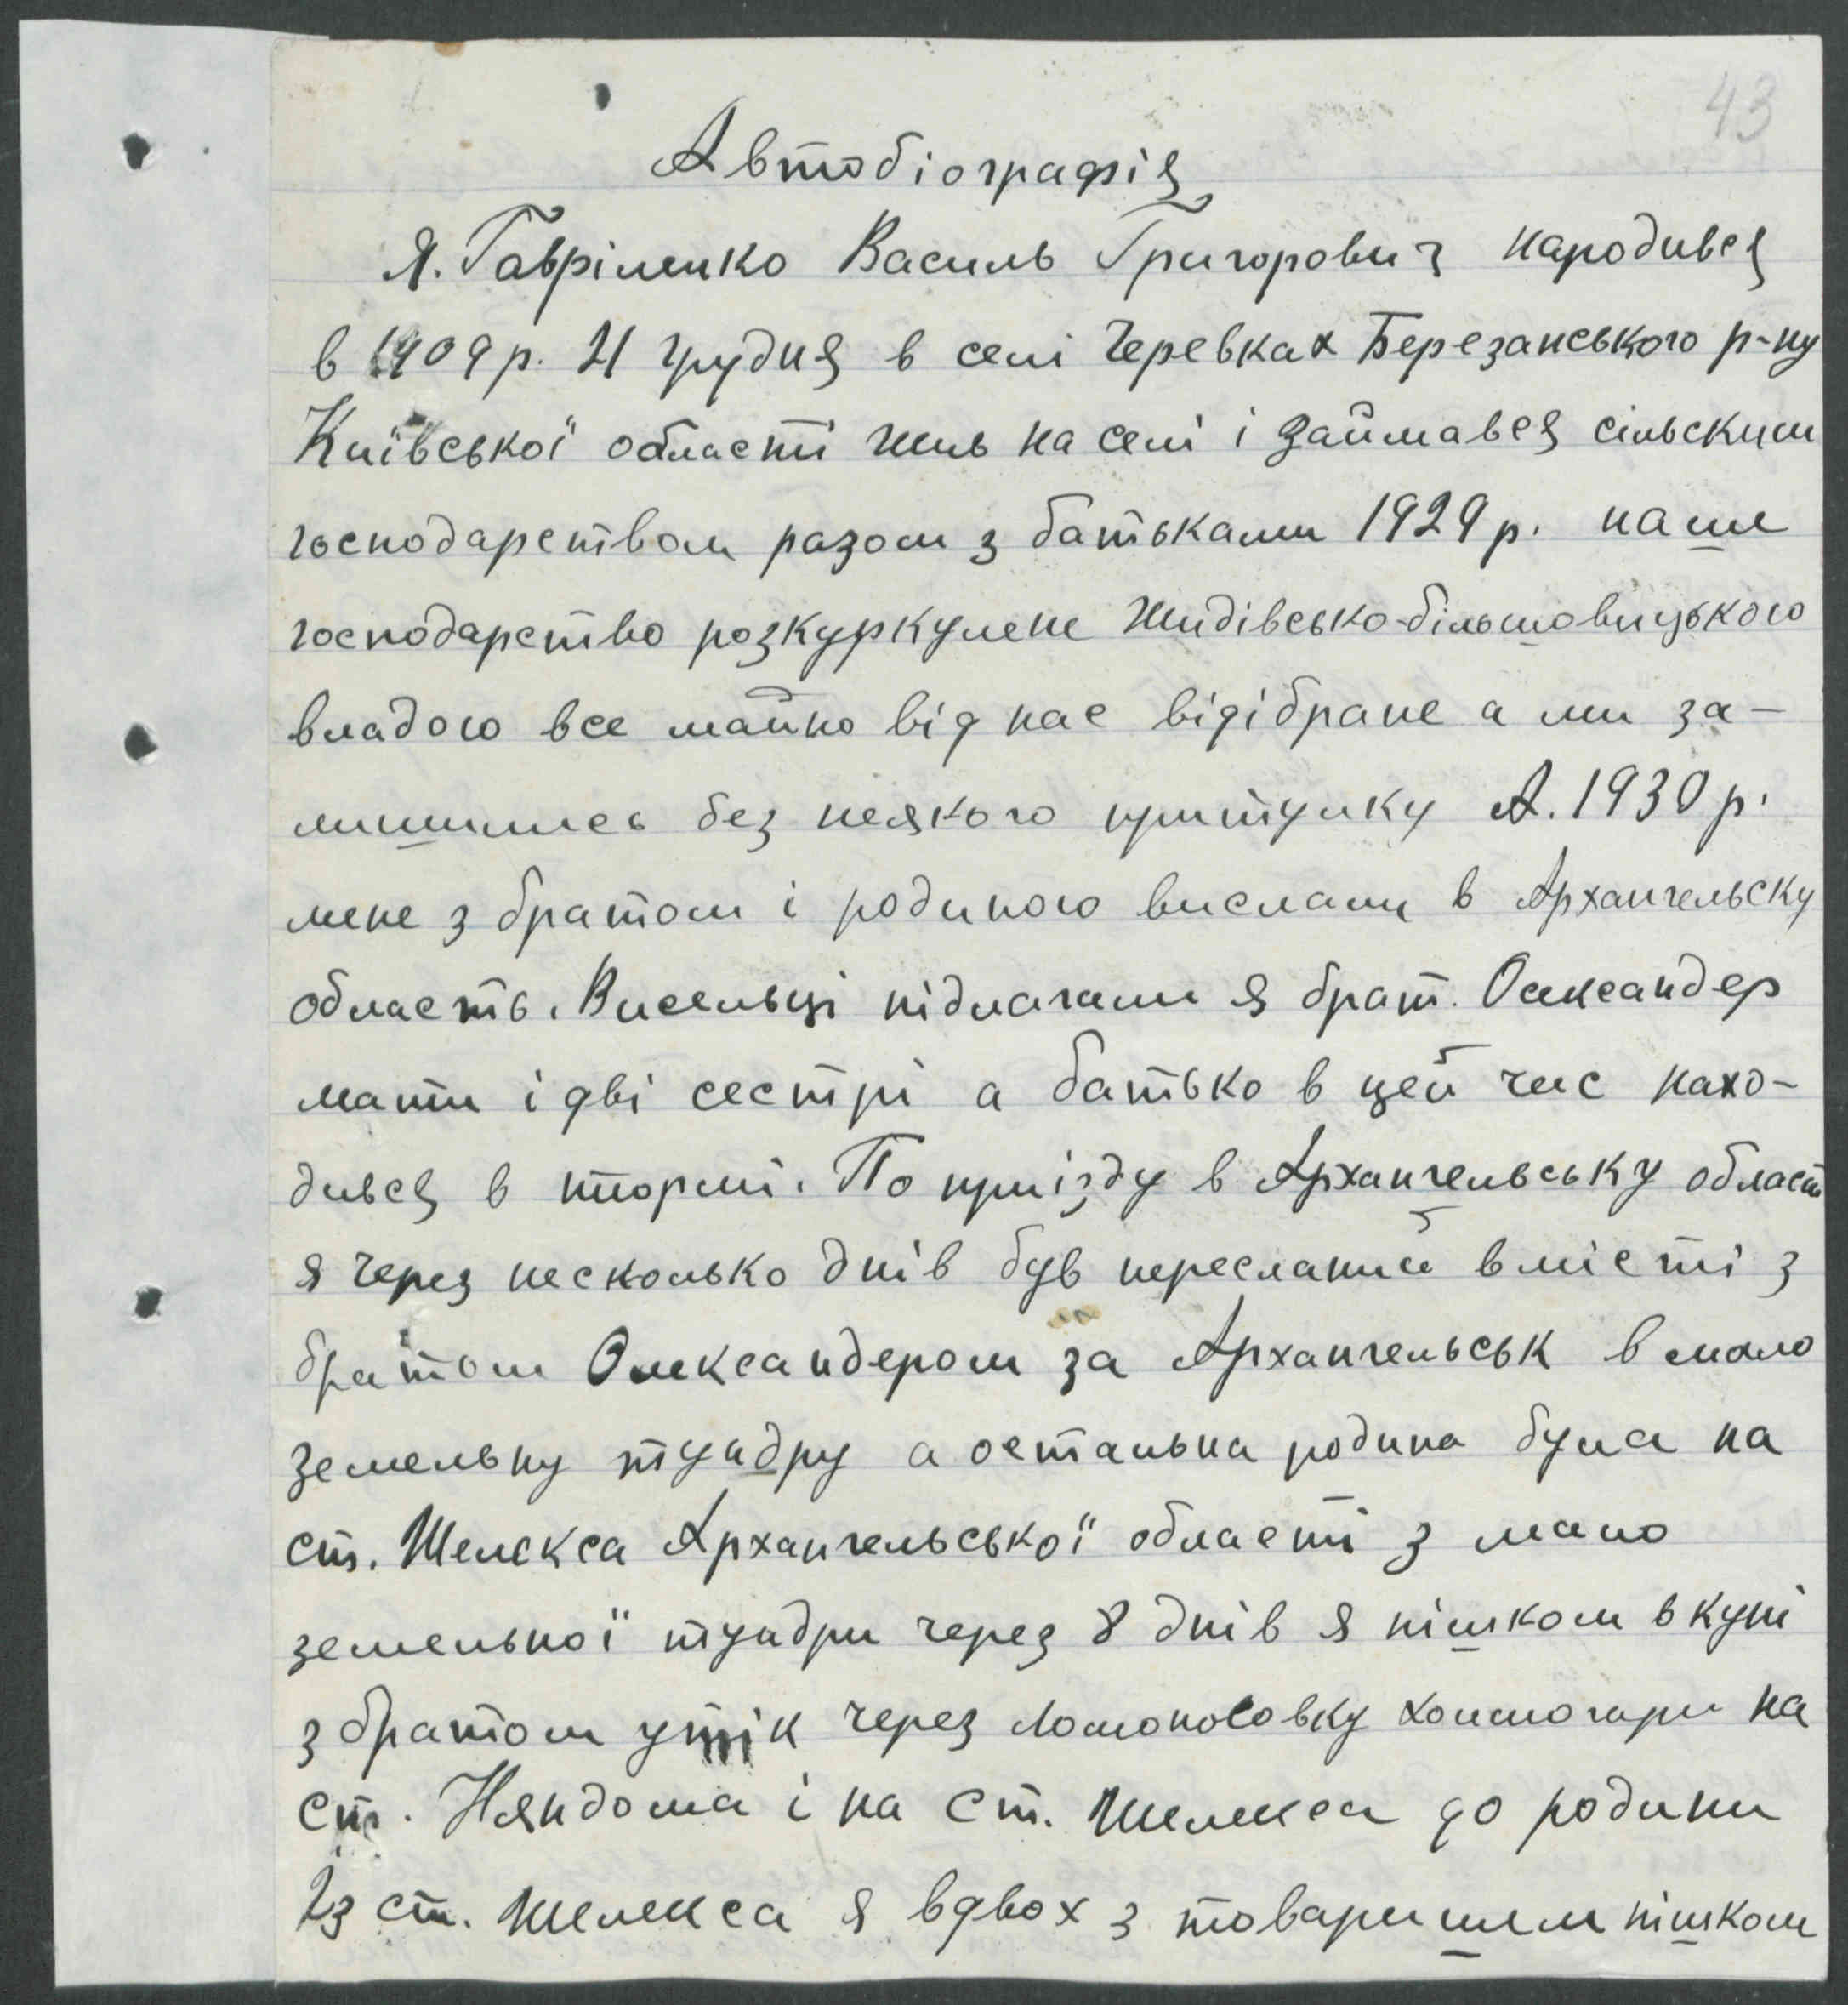 43
Автобіографія
Я. Гавріленко Василь Григорович народився
в 1909 р. 21 грудня в селі Черевках Березанського р-ну
Київської області жив на селі і займався сільским
господарством разом з батьками 1929 р. наше
господарство розкуркулене жидівсько-більшовицького
владою все майно від нас відібране а ми за-
лишились без неякого притулку А. 1930 р.
мене з братом і родиною вислали в Архангельску
область. Висельці підлягали я брат. Олександер
мати і дві сестрі а батько в цей час нахо-
дився в тюрмі. По приїзду в Архангельську област
я через несколько днів був пересланий вмісті з
братом Олександером за Архангельськ в мало
земельну тундру а остальна родина була на
ст. Шелекса Архангельської області з мало
земельної тундри через 8 днів я пішком вкупі
з братом утік через Ломоносовку Холмогари на
ст. Няндома і на ст. Шелекса до родини
Із ст. Шелекса я вдвох з товаришем пішком